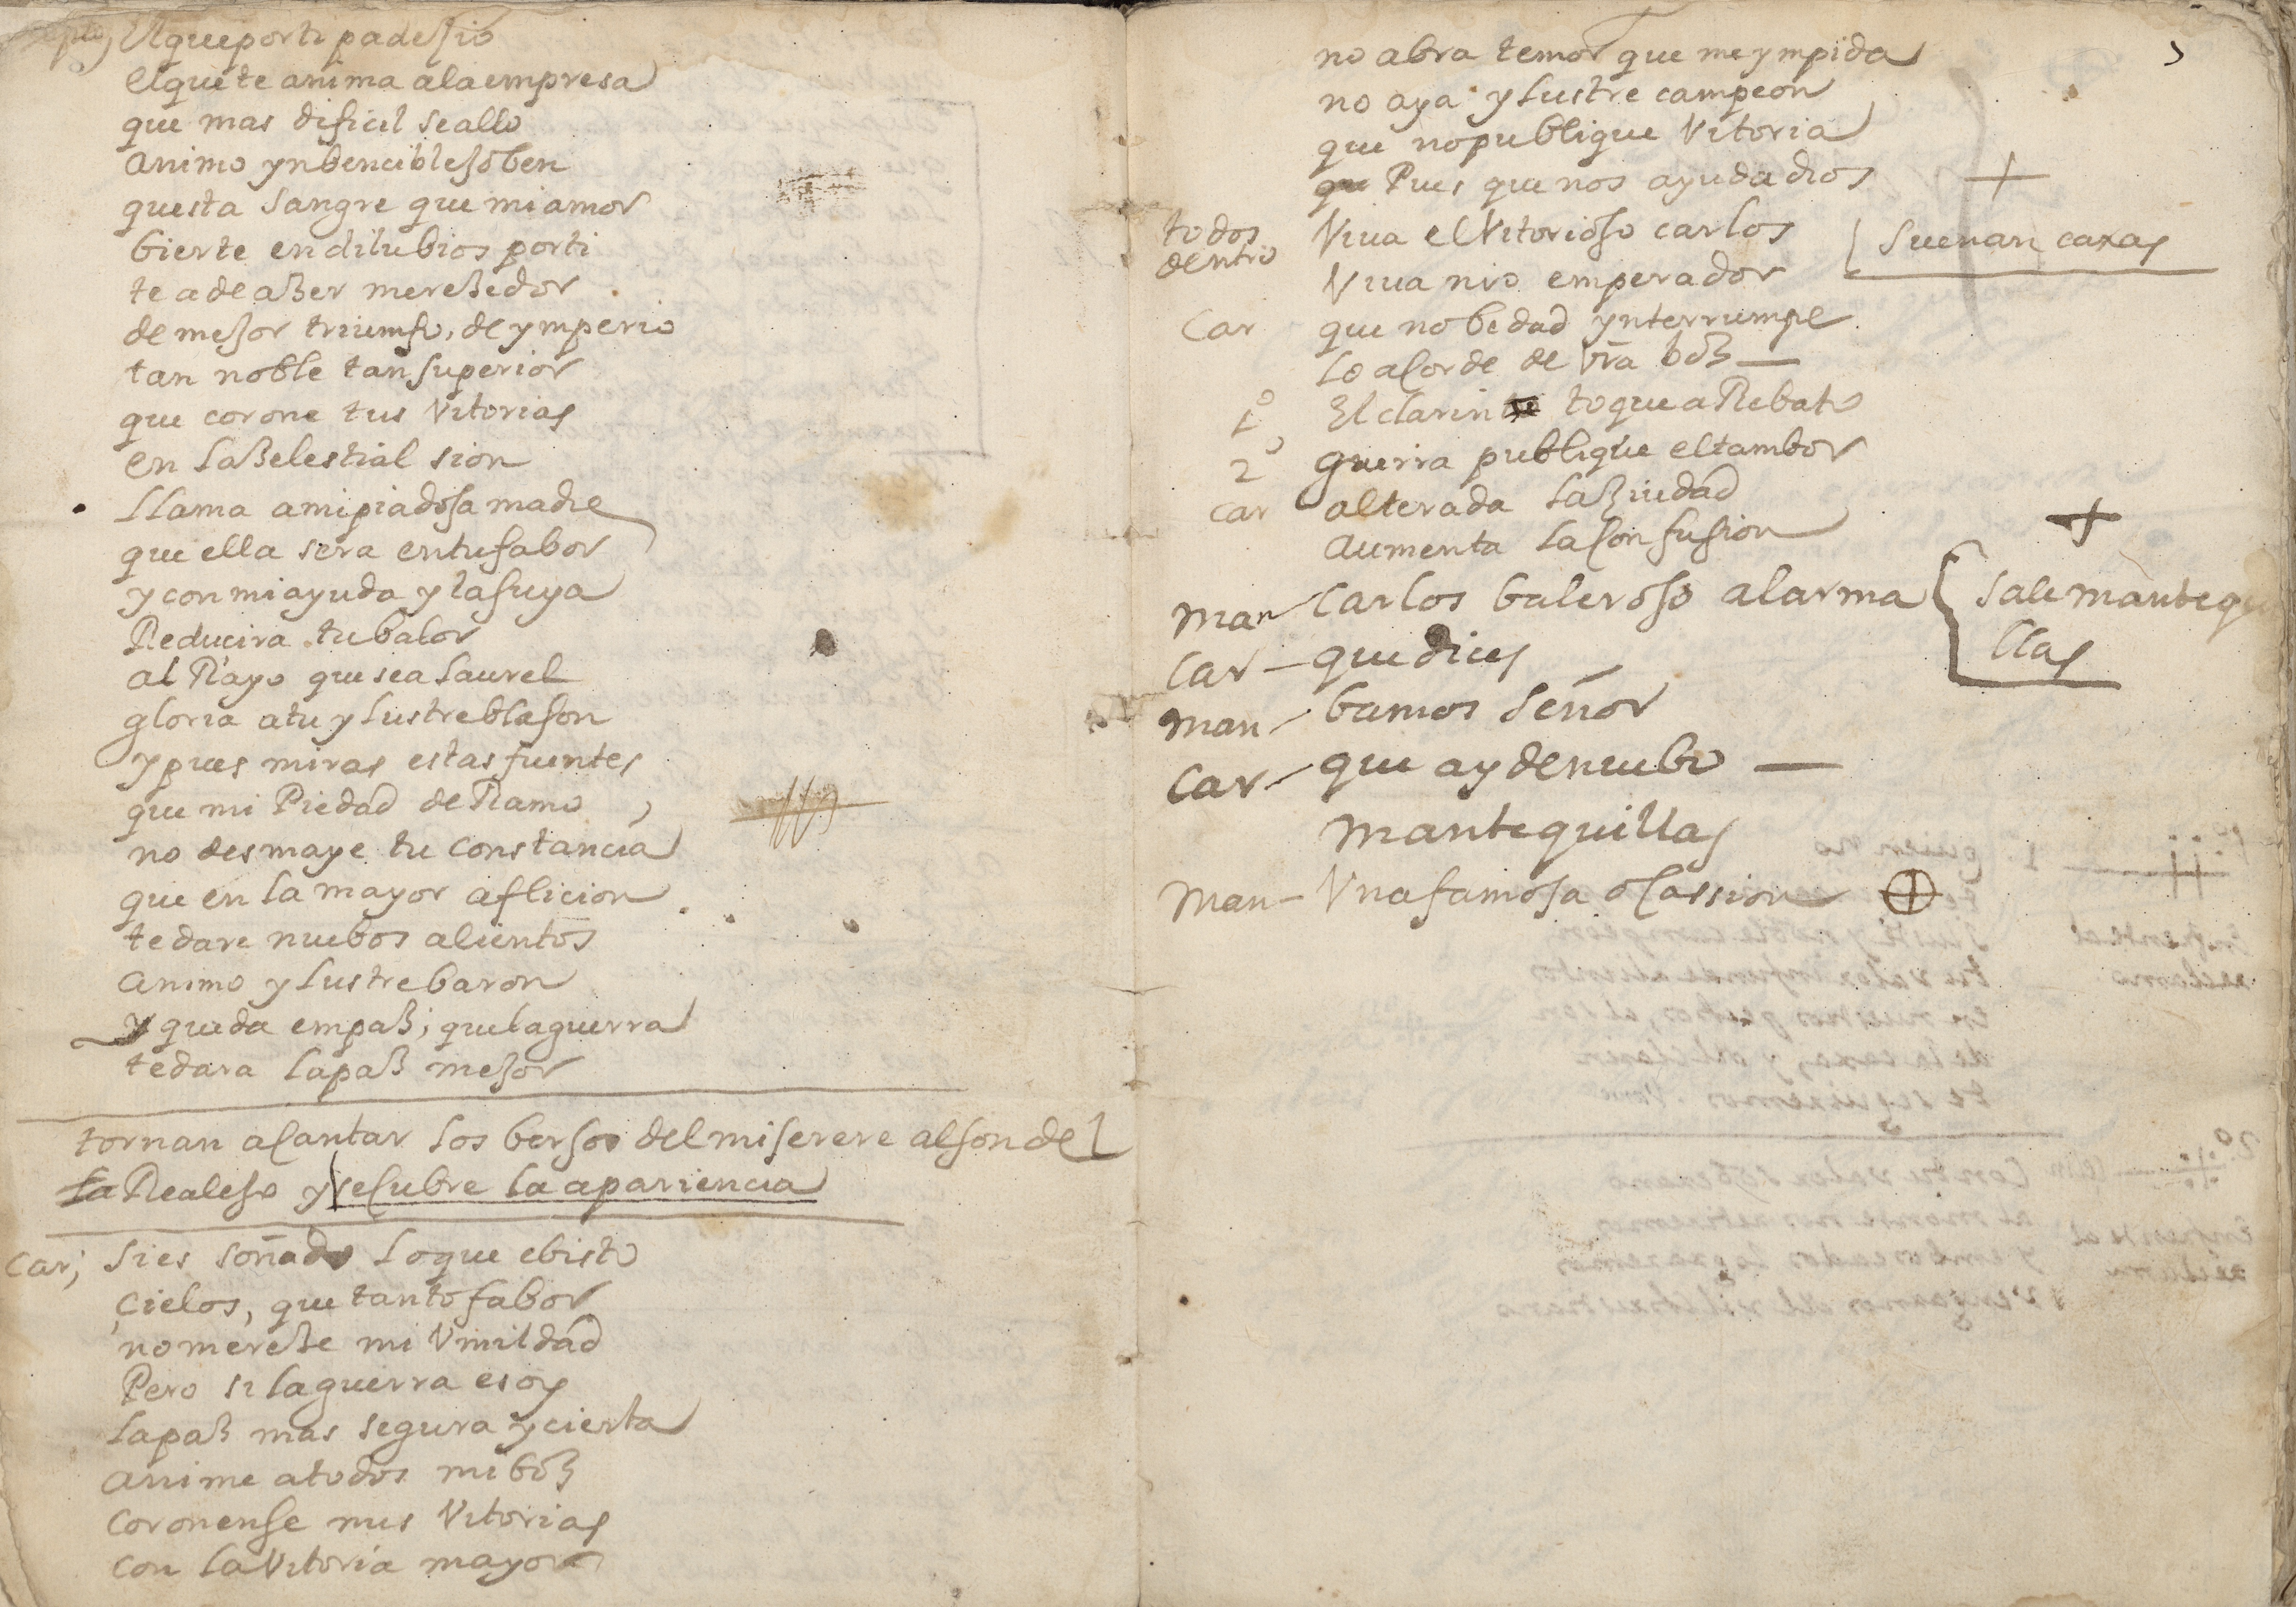 xpto, El que por ti padeçio
el que te anima a la empresa
que mas dificil se allo
animo ynbencible joben
questa sangre que mi amor
bierte en dilubios por ti
te a de açer mereçedor
de mejor triumfo, de ymperio
tan noble tan superior
que corone tus Vitorias
en la çelestial sion
llama a mi piadosa madre
que ella sera en tu fabor
y con mi ayuda y la suya
Reducira tu balor
al Rayo que sea laurel
gloria a tu ylustre blason
y pues miras estas fuentes
que mi Piedad deRamo
no desmaye tu constancia
que en la mayor aflicion
te dare nuebos alientos
animo ylustre baron
y queda em paz, que la guerra
te dara la paz mejor
tornan a cantar los bersos del miserere al son del
la Realejo y se cubre la apariencia
Car, si es soñado lo que e bisto
cielos, que tanto fabor
no mereçe mi Vmildad
Pero si la guerra es oy
la paz mas segura y cierta
anime a todos mi boz
coronense mis Vitorias
con la Vitoria mayor
no abra temor que me ympida
no aya ylustre campeon
que no publique Vitoria
que Pues que nos ayuda dios
todos dentro Viua el Vitorioso carlos suenan caxas
Viua nro emperador
Car que nobedad ynterrumpe
lo acorde de vra boz
1º El clarin te toque a Rebato
2º guerra publique el tambor
car alterada la ziudad
aumenta la confusion
Man carlos baleroso al arma sale mantequi
llas
Car que dices
Man bamos señor
Car que ay de nuebo
mantequillas
Man Vna famosa ocassion